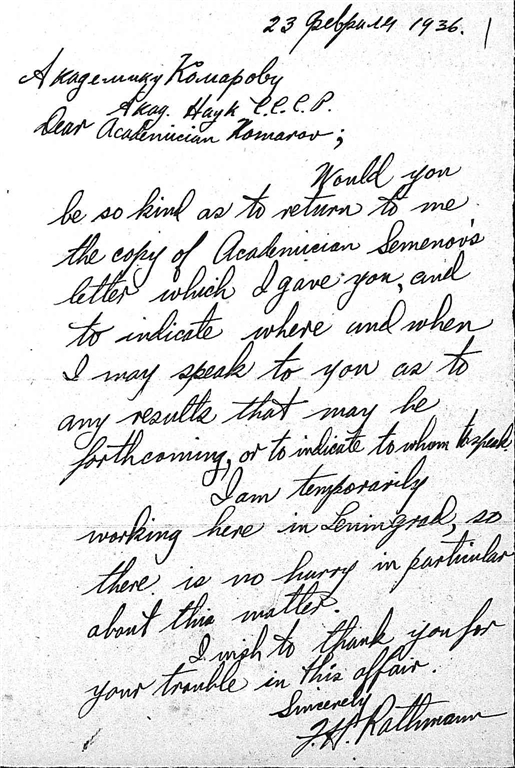 23 Февраля 1936.
Академику Комарову
Акад. Наук С.С.С.Р.
Dear Academician Komarov;
Would you
be so kind as to return to me
the copy of Academician Semenov's
letter which I gave you, and
to indicate where and when
I may speak to you as to
any results that may be
forthcoming, or to indicate to whom to speak
I am temporarily
working here in Leningrad, so
there is no hurry in particular
about this matter.
I wish to thank you for
your trouble in this affair.
Sincerely
F. H. Rathmann